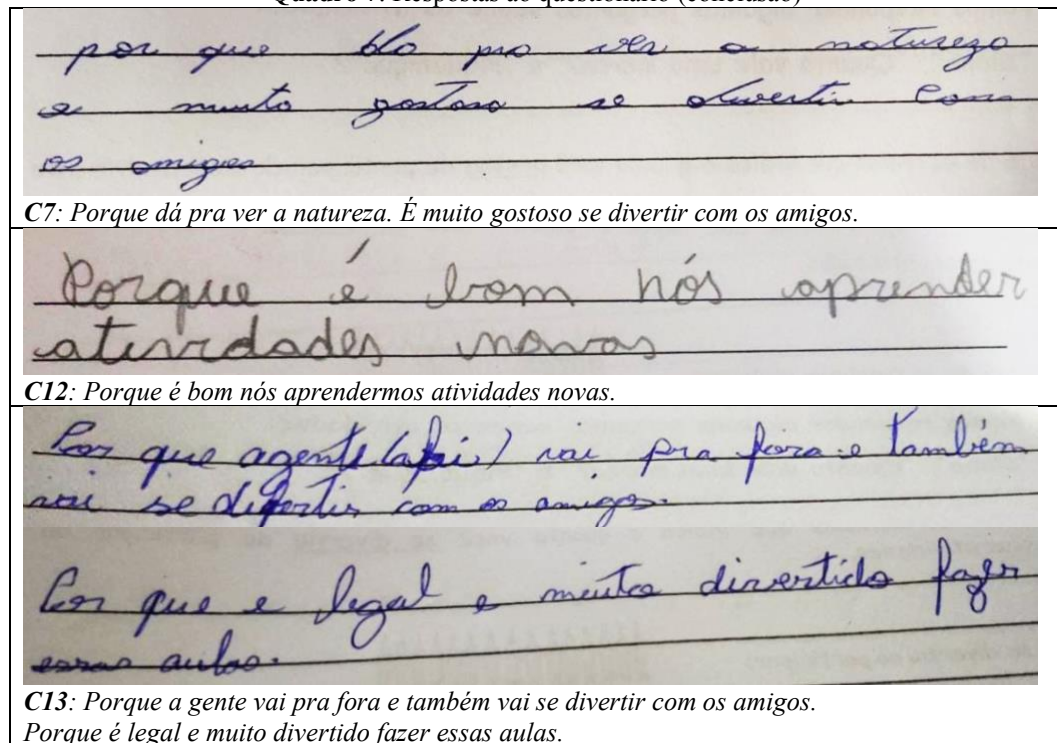 Quadro 7: Respostas ao questionário (conclusão)
por que da pra ver a natureza
e muito gostoso se divertir com
os amigos
C7: Porque dá pra ver a natureza. É muito gostoso se divertir com os amigos.
Porque é bom nós aprender
atividades novas
C12: Porque é bom nós aprendermos atividades novas.
Por que agente vai pra fora e também
vai se difertir com os amigos.
Por que e legal e muito divertido fazer
essas aulas.
C13: Porque a gente vai pra fora e também vai se divertir com os amigos.
Porque é legal e muito divertido fazer essas aulas.